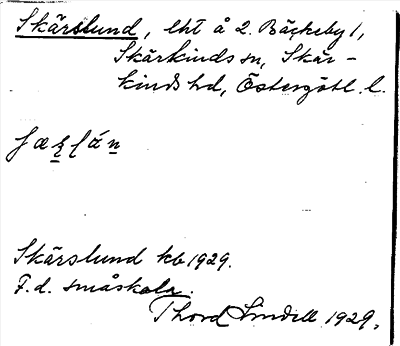 Skärslund, lht å 2. Bäckeby 1,
Skärkinds sn, Skär-
kinds hd, Östergötl. l.
Skärslund kb 1929.
F.d. småskola.
Thord Lindell 1929.